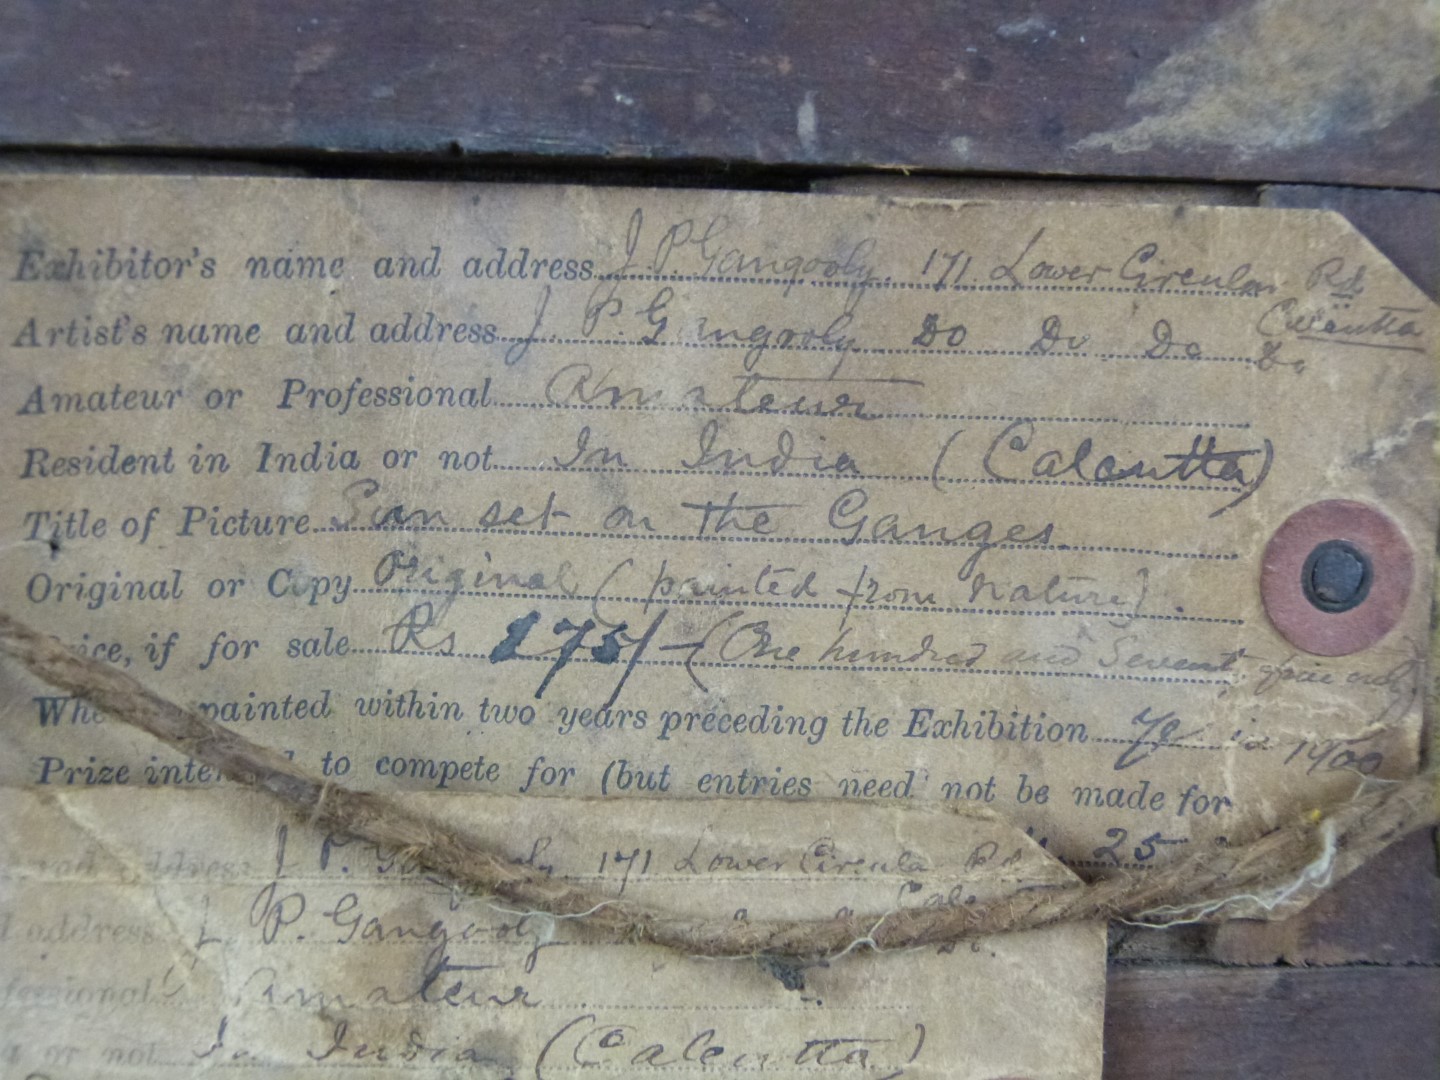 Exhibitor's name and address J. P. Gangooly. 171. Lower Circular Rd
Calcutta
Artist's name and address J. P. Gangooly Do Do Do Do
Amateur or Professional Amateur
Resident in India or not In India (Calcutta)
Title of Picture Sun set on the Ganges.
Original or Copy Original (painted from Nature).
Price, if for sale Rs 175/- (One hundred and Seventy five only)
painted within two years preceding the Exhibition in 1900
Prize to compete for (but entries need not be made for
25
address J. P. Gangooly 171 Lower Circular Rd
address J. P. Gangooly
Amateur
or not In India (Calcutta)